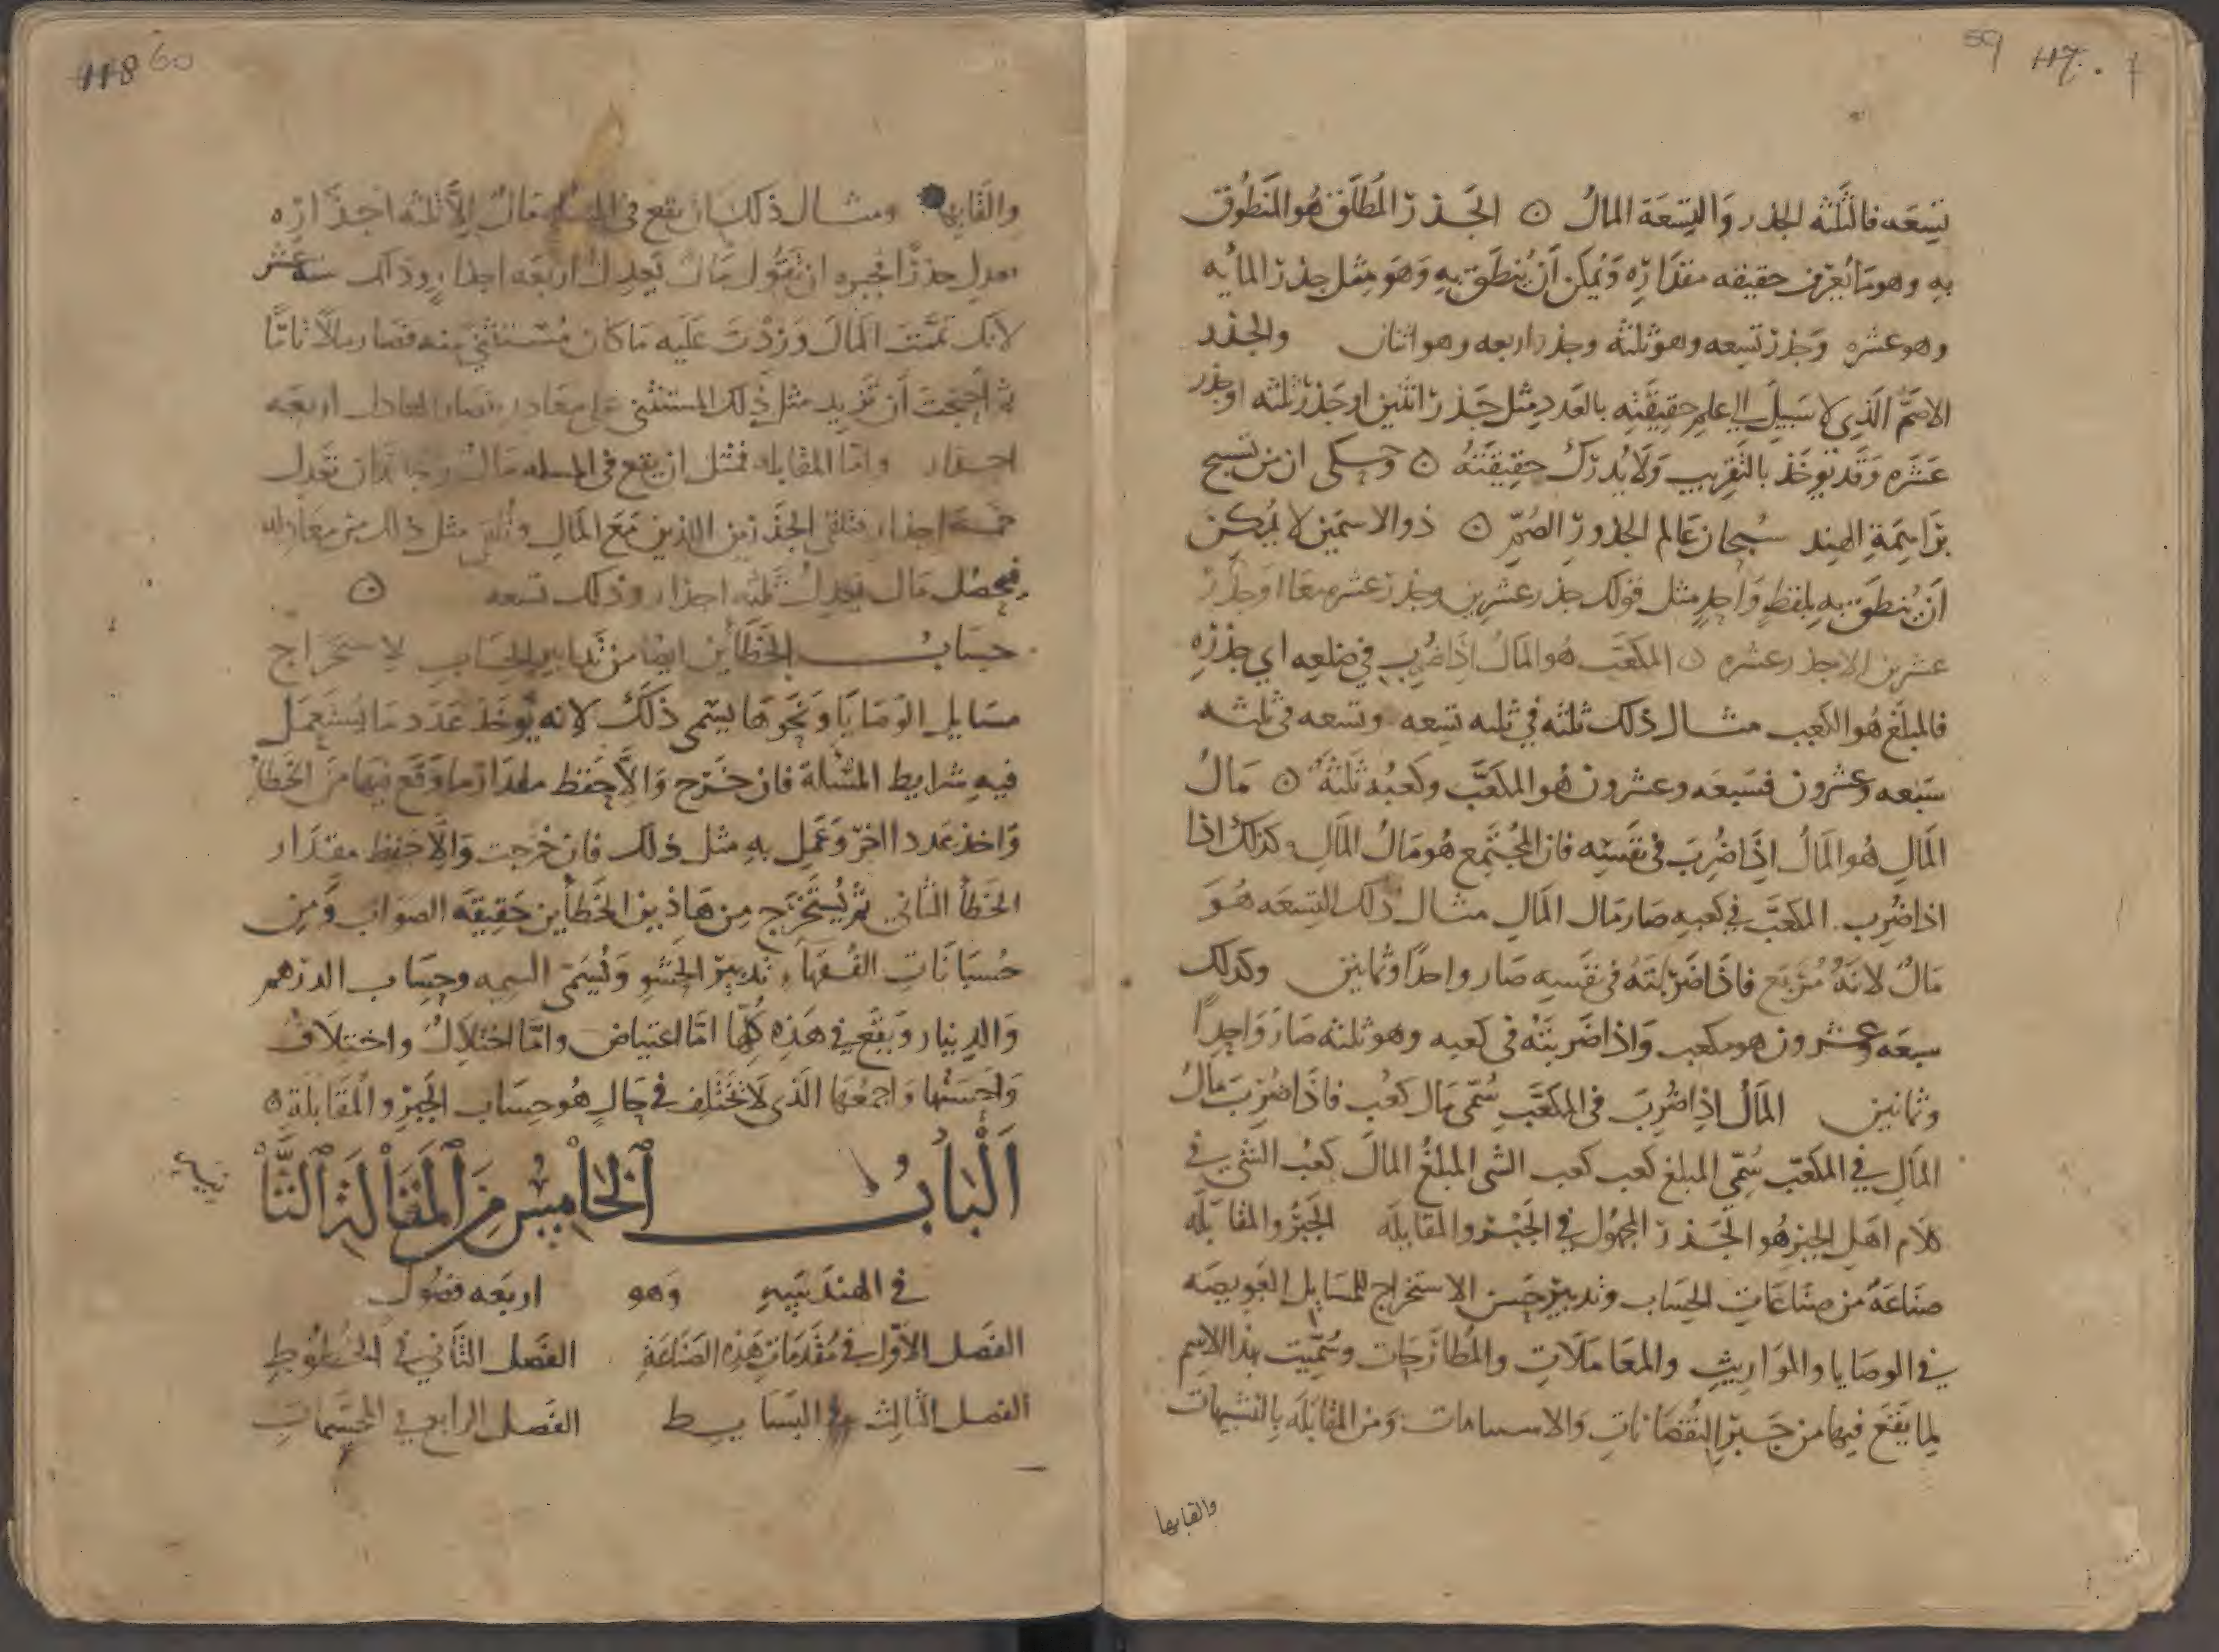 59 117
تسعه فالثلثه الجذر والتسعة المال ن الجذر المطلق هو المنطوق
به وهو ما يعرف حقيقه مقداره ويمكن أن ينطق به وهو مثل جذر المايه
وهو عشره وجذر تسعه وهو ثلثه وجذر اربعه وهو اثنان والجذر
الاصم الذي لا سبيل الى علم حقيقته بالعدد مثل جذر اثنين او جذر ثلثه او جذر
عشره وقد يوخذ بالتقريب ولا يدرك حقيقته ن وحكى ان من تسبيح
براهمة الهند سبحان عالم الجذور الصم ن ذو الاسمين لا يمكن
ان ينطق به بلفظ واحد مثل قولك جذر عشرين وجذر عشره معا او جذر
عشرين الا جذر عشره ن المكعب هو المال اذا ضرب في ضلعه اي جذره
فالمبلغ هو الكعب مثال ذلك ثلثه في ثلثه تسعه وتسعه في ثلثه
سبعه وعشرون فسبعه وعشرون هو المكعب وكعبه ثلثة ن مال
المال هو المال اذا ضرب في نفسه فان المجتمع هو مال المال وكذلك اذا
اذا ضرب المكعب في كعبه صار مال المال مثال ذلك التسعه هو
مال لانه مربع فاذا ضربته في نفسه صار واحدا وثمانين وكذلك
سبعه وعشرون هو مكعب واذا ضربته في كعبه وهو ثلثه صار واحدا
وثمانين المال اذا ضرب في المكعب سمى مال كعب فاذا ضرب مال
المال في المكعب سمي المبلغ كعب كعب الشى المبلغ المال كعب الشي في
كلام اهل الجبر هو الجذر المجهول في الجبر والمقابله الجبر والمقابله
صناعة من صناعات الحساب وتدبير حسن الاستخراج للمسايل العويصه
في الوصايا والمواريث والمعاملات والمطارحات وسميت بهذا الاسم
لما يقع فيها من جبر النقصانات والاستثناات ومن المقابله بالتشبيهات
والقايها
118 60
والقايها ومثال ذلك ان يقع في المسله مال الا ثلثه اجذاره
يعدل جذرا فجبره ان تقول مال يعدل اربعه اجذار وذلك سته عشر
لانك تممت المال وزدت عليه ما كان مستثنى منه فصار مالا تاما
ثم احتجت أن تزيد مثل ذلك المستثنى على معادله فصار المعادل اربعه
اجذار واما المقابله فمثل ان يقع في المسله مال وجذران تعدل
خمسة اجذار فتلقى الجذرين اللذين مع المال وتلقى مثل ذلك من معادله
فيحصل مال يعدل ثلثه اجذار وذلك تسعه ن
حساب الخطأين ايضا من تدابير الحساب لاستخراج
مسايل الوصايا ونحوها يسمى ذلك لانه يوخذ عدد ما يستعمل
فيه شرايط المسلة فان خرج والا حفظ مقدار ما وقع فيها من الخطأ
واخذ عدد اخر وعمل به مثل ذلك فان خرجت والا حفظ مقدار
الخطأ الثاني ثم يستخرج من هاذين الخطأين حقيقة الصواب ومن
حسبانات الفقهاء تدبير الحشو ويسمى وحساب الدرهم
والدينار ويقع في هذه كلها اما اعتياض واما اختلال واختلاف
واحسنها واجمعها الذي لا تختلف في حال هو حساب الجبر والمقابلة ن
الباب الخامس من المقالة الثا
نية
في الهندسه وهو اربعه فصول
الفصل الاول في مقدمات هذه الصناعة الفصل الثاني في الخطوط
الفصل الثالث في البسايط الفصل الرابع في المجسمات